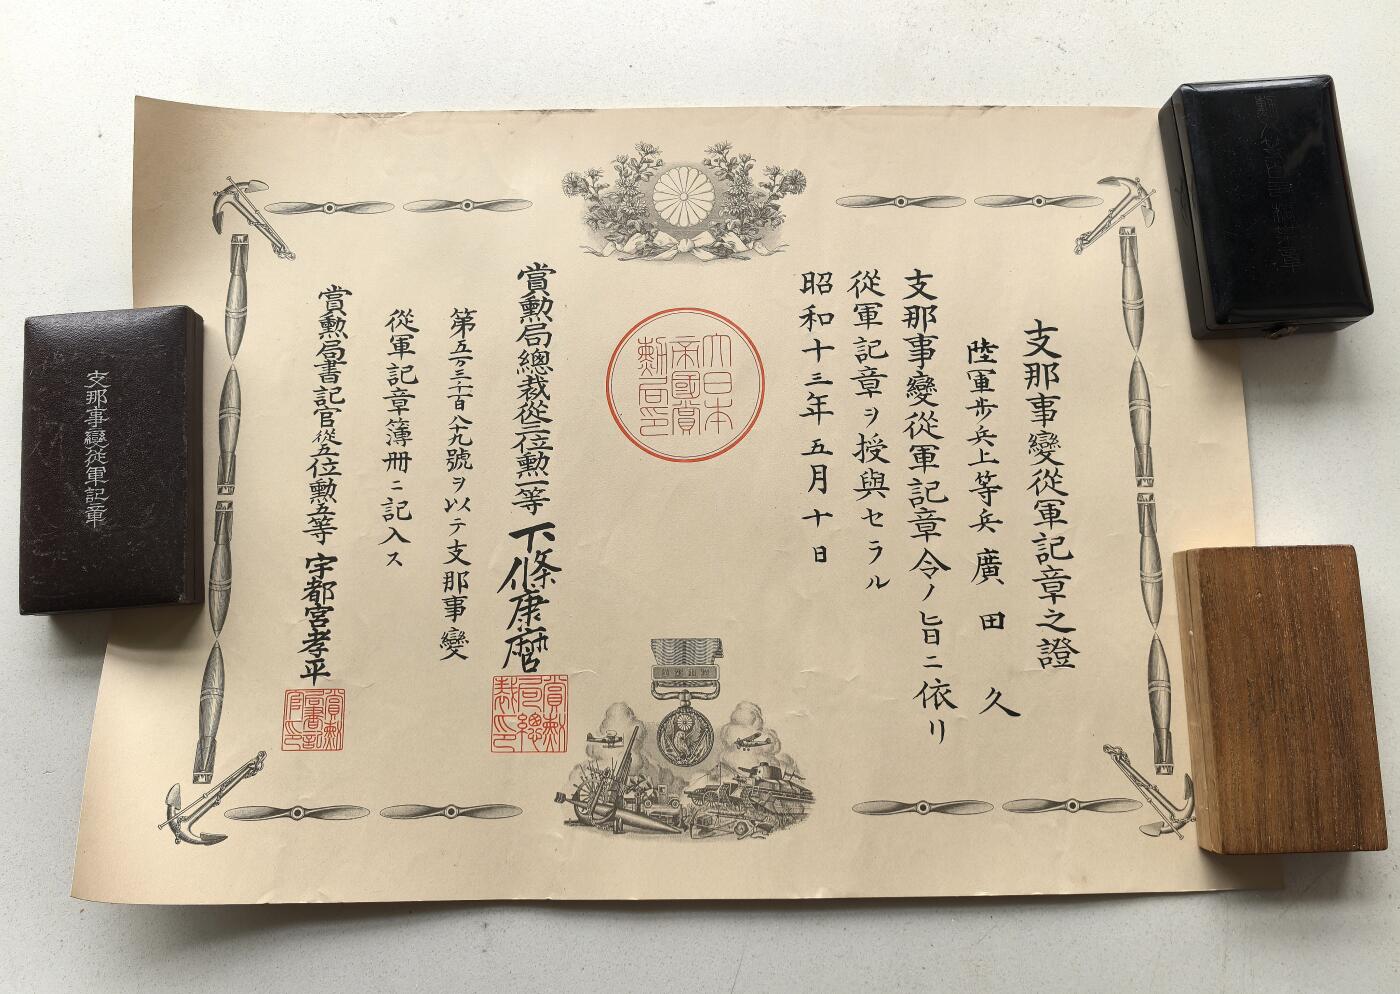 支那事變從軍記章之證
陸軍步兵上等兵 廣田久
支那事變從軍記章令ノ旨ニ依リ
從軍記章ヲ授與セラル
昭和十三年五月十日
大日本
帝國賞
勳局印
賞勳局總裁從三位勳一等 下條康麿
賞勳
局總
裁印
號ヲ以テ支那事變
從軍記章簿册ニ記入ス
賞勳局書記官從五位勳五等 宇都宮孝平
賞勳
局書記
官印
支那事變從軍記章